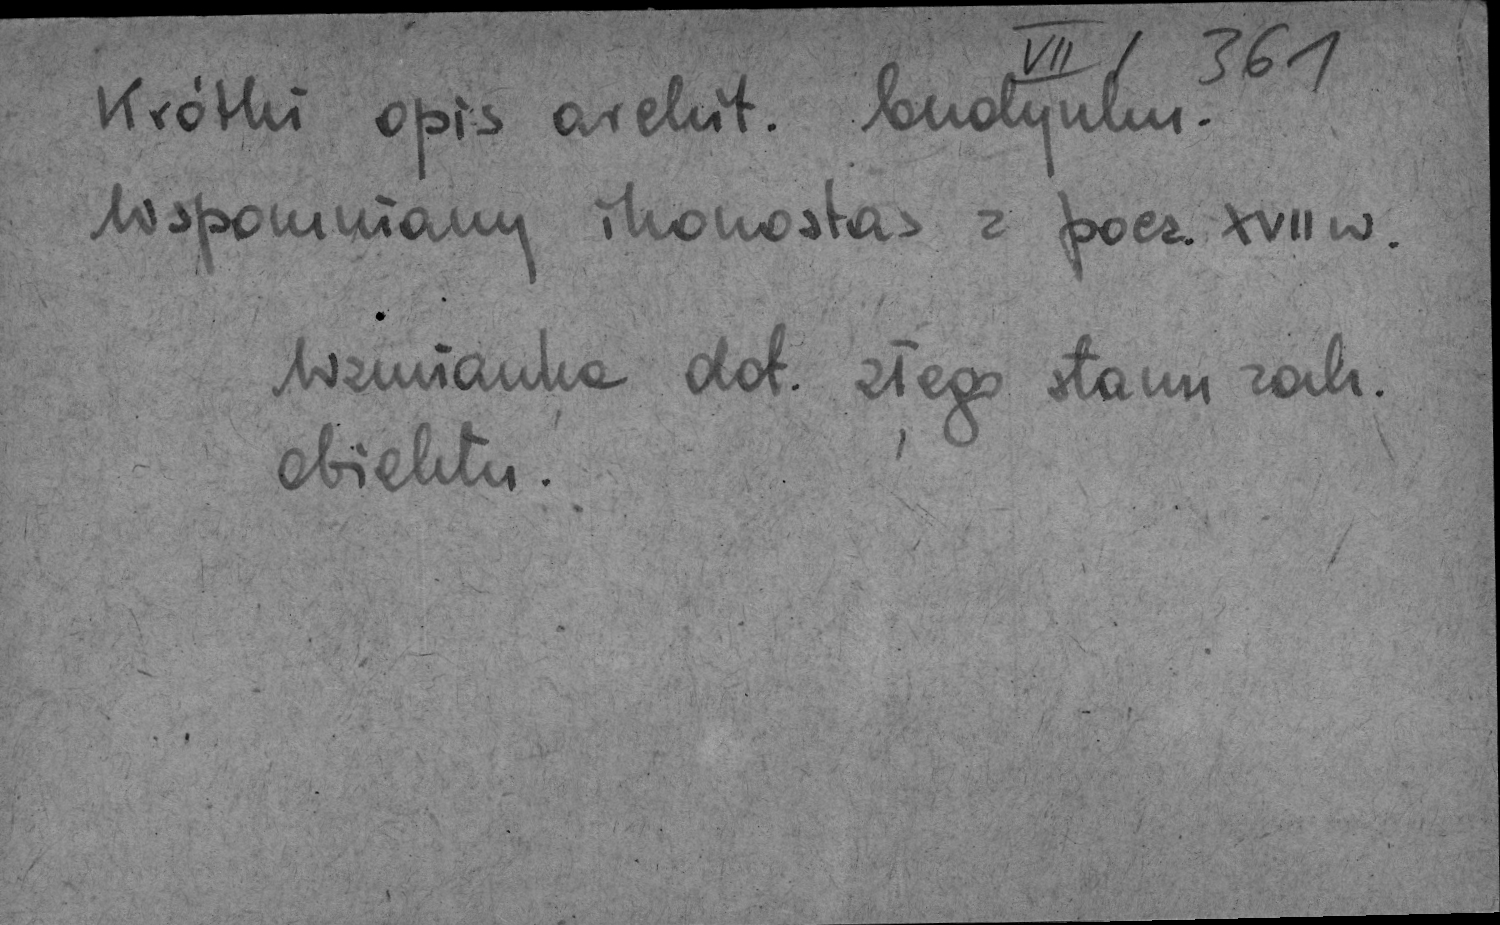 VII / 361
Krótki opis archit. budynku.
Wspomniany ikonostas z pocz. XVII w.
Wzmianka dot. złego stanu zach.
obiektu.